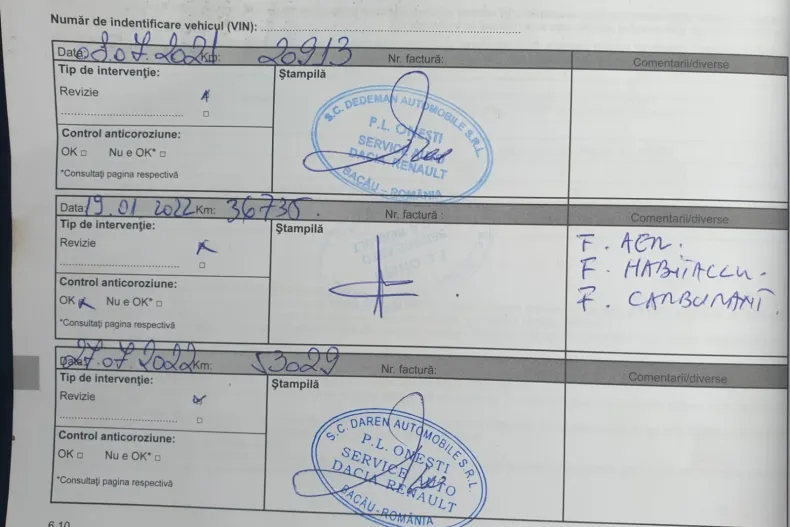 Număr de indentificare vehicul (VIN):
Data: 03.07.2021 Km: 20913 Nr. factură: Comentarii/diverse
Tip de intervenție: Ștampilă
Revizie
Control anticoroziune:
OK □ Nu e OK* □
*Consultați pagina respectivă
S.C. DEDEMAN AUTOMOBILE S.R.L.
P.L. ONEȘTI
SERVICE AUTO
DACIA RENAULT
BACĂU - ROMÂNIA
Data: 19.01 2022 Km: 36735. Nr. factură: Comentarii/diverse
Tip de intervenție: Ștampilă
Revizie
Control anticoroziune:
OK Nu e OK* □
*Consultați pagina respectivă
F. AER.
F. HABITACLU.
F. CARBURANT.
Data: 27.07.2022 Km: 53029 Nr. factură: Comentarii/diverse
Tip de intervenție: Ștampilă
Revizie
Control anticoroziune:
OK □ Nu e OK* □
*Consultați pagina respectivă
S.C. DAREN AUTOMOBILE S.R.L.
P.L. ONEȘTI
SERVICE AUTO
DACIA RENAULT
BACĂU-ROMÂNIA
6.10